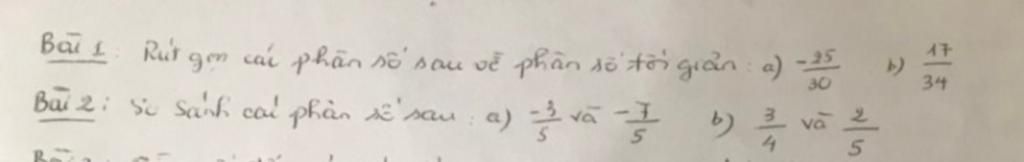 Bài 1: Rút gọn các phân số sau về phân số tối giản: a) -25/30 b) 17/34
Bài 2: So sánh các phân số sau: a) -3/5 và -7/5 b) 3/4 và 2/5